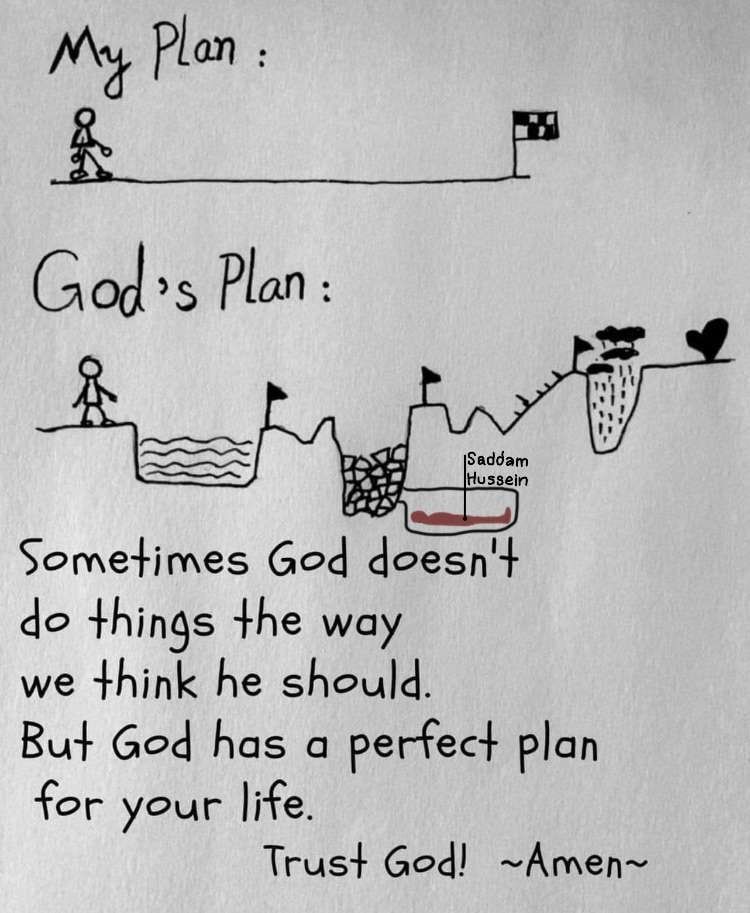 My Plan :
God's Plan :
Saddam
Hussein
Sometimes God doesn't
do things the way
we think he should.
But God has a perfect plan
for your life.
Trust God! ~Amen~